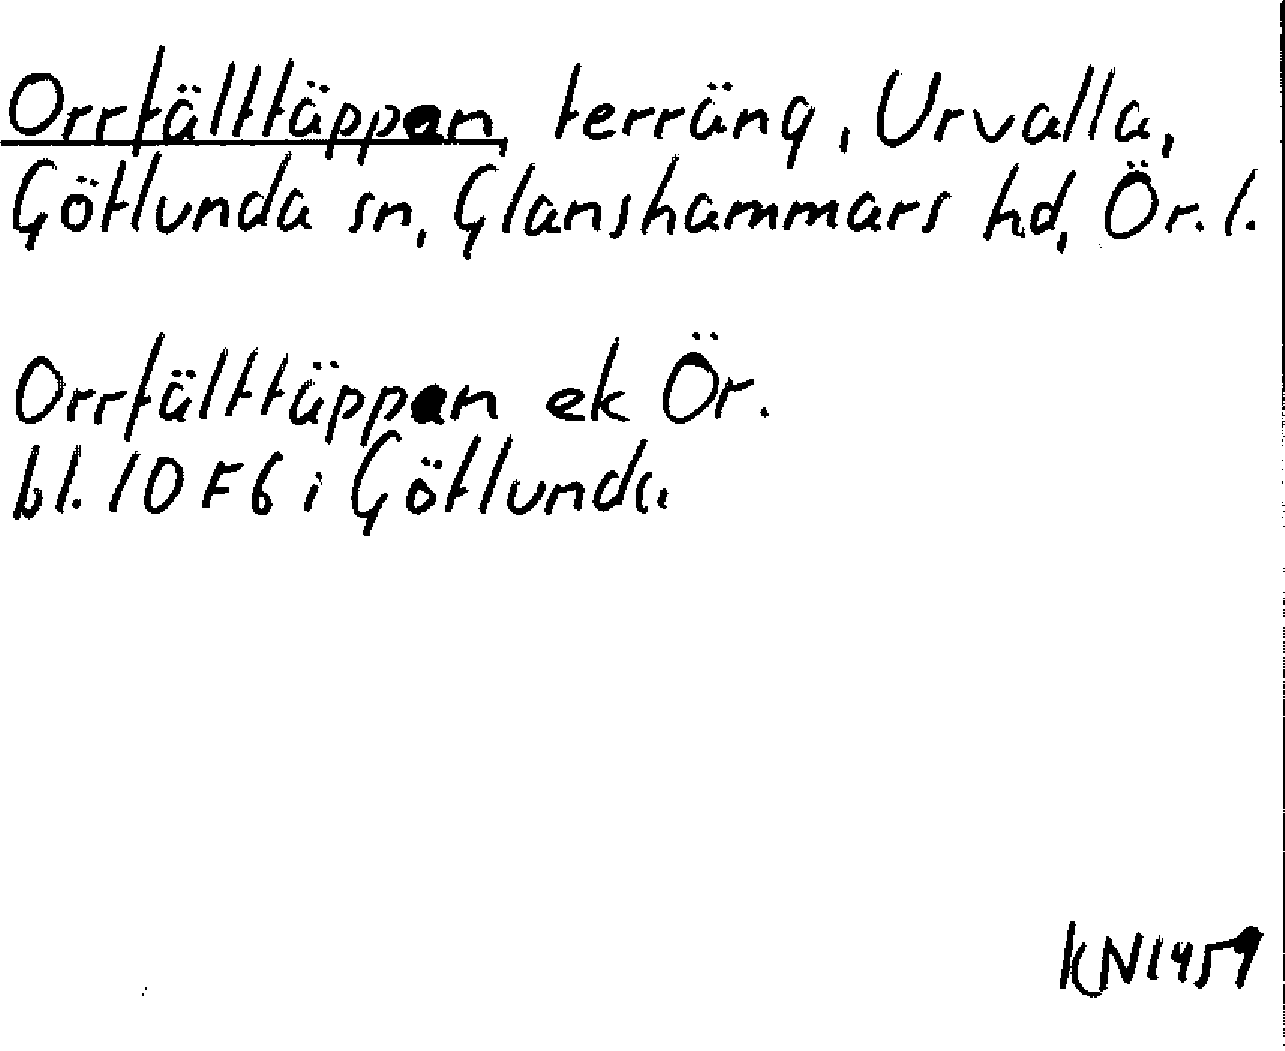 Orrfälttäppen, terräng, Urvalla,
Götlunda sn, Glanshammars hd, Ör. l.
Orrfälttäppen ek Ör.
bl. 10 F6 i Götlunda
KN1459